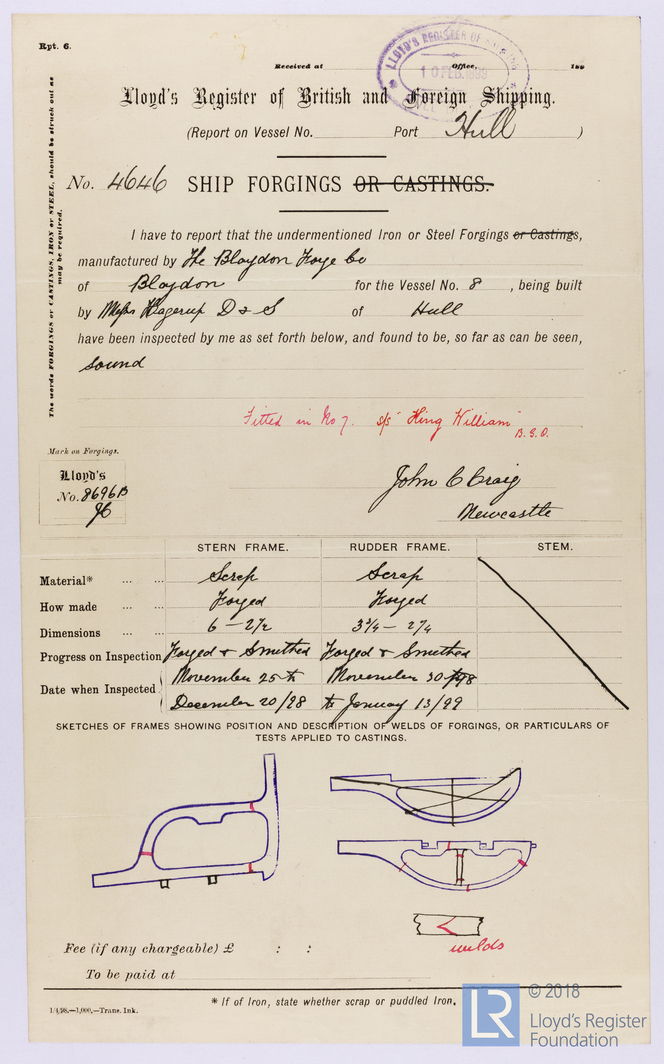 Rpt. 6.
Received at
Office,
189
LLOYD'S REGISTER OF
10 FEB. 1899
Lloyd's Register of British and Foreign Shipping.
(Report on Vessel No. Port Hull )
No. 4646 SHIP FORGINGS OR CASTINGS.
The words FORGINGS or CASTINGS, IRON or STEEL, should be struck out as
may be required.
I have to report that the undermentioned Iron or Steel Forgings or Castings,
manufactured by The Blaydon Forge Co
of Blaydon for the Vessel No. 8 , being built
by Messrs Hagerup D & S of Hull
have been inspected by me as set forth below, and found to be, so far as can be seen,
sound
Fitted in No 7. s/s "King William"
B.G.O.
Mark on Forgings.
Lloyd's
No. 8696B
JC
John C Craig
Newcastle
STERN FRAME. RUDDER FRAME. STEM.
Material* ... ... Scrap Scrap
How made ... ... Forged Forged
Dimensions ... ... 6 — 2 1/2 3 3/4 — 2 1/4
Progress on Inspection Forged & Smithed Forged & Smithed
Date when Inspected November 25th November 30th/98
December 20/98 to January 13/99
SKETCHES OF FRAMES SHOWING POSITION AND DESCRIPTION OF WELDS OF FORGINGS, OR PARTICULARS OF
TESTS APPLIED TO CASTINGS.
welds
Fee (if any chargeable) £ : :
To be paid at
* If of Iron, state whether scrap or puddled Iron.
1/4/98.—1,000.—Trans. Ink.
LR
© 2018
Lloyd's Register
Foundation